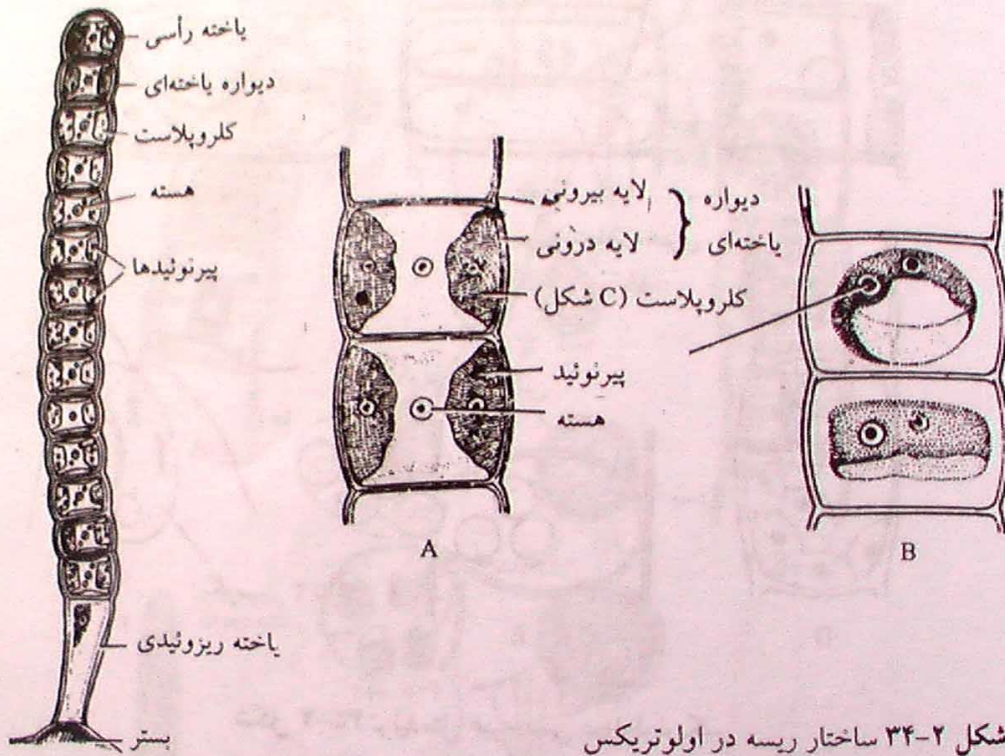 یاخته رأسی
دیواره یاخته‌ای
کلروپلاست
هسته
پیرنوئیدها
یاخته ریزوئیدی
بستر
لایه بیرونی
لایه درونی
دیواره
یاخته‌ای
کلروپلاست (C شکل)
پیرنوئید
هسته
A
B
شکل ۲-۳۴ ساختار ریسه در اولوتریکس